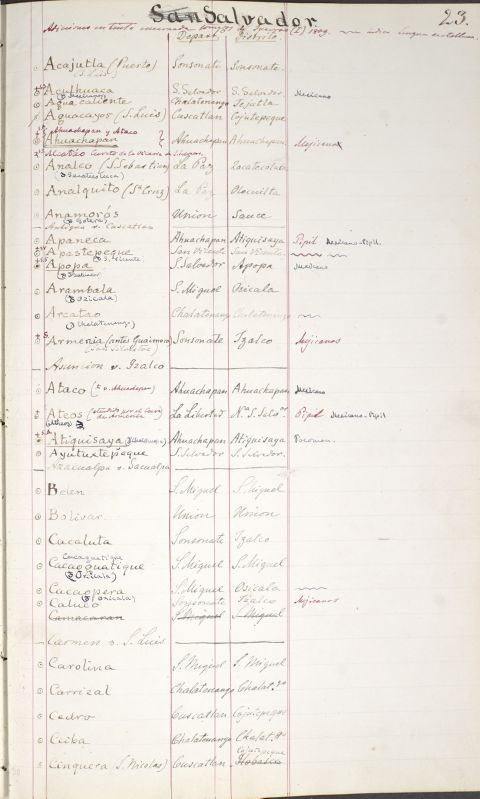 San Salvador
23.
Depart. Distrito
Acajutla (Puerto) Sonsonate Sonsonate.
(S. Luis)
Aculhuaca S. Salvador S. Salvador. Mexicano
Agua caliente Chalatenango Tejutla
Aguacayos (S. Luis) Cuscatlan Cojutepeque
Ahuachapan y Ataco
Ahuachapan Ahuachapan Ahuachapan Mejicano
Analco (S. Sebastian) La Paz Zacatecoluca
Analquito (Sta Cruz) La Paz Olocuilta
Anamorós Union Sauce
(Gotera)
Antigua v. Cuscatlan
Apaneca Ahuachapan Atiquisaya Pipil Mexicano-Pipil.
Apastepeque San Vicente San Vicente
(S. Vicente)
Apopa S. Salvador Apopa Mexicano
Arambala S. Miguel Osicala
(Osicala)
Arcatao Chalatenango Chalatenango
(Chalatenango)
Armenia (antes Guaimoco) Sonsonate Izalco Mejicanos
Asuncion v. Izalco
Ataco Ahuachapan Ahuachapan Mexicano
Ateos La Libertad Na. S. Salor. Pipil Mexicano-Pipil
Atiquisaya Ahuachapan Atiquisaya Pocoman.
Ayutuxtepeque S. Salvador S. Salvador.
Azacualpa v. Sacualpa
Belen S. Miguel S. Miguel
Bolivar Union Union
Cacaluta Sonsonate Izalco
Cacaguatique
Cacaoguatique S. Miguel S. Miguel
(Osicala)
Cacaopera S. Miguel Osicala
(Osicala)
Caluco Sonsonate Izalco Mejicanos
Camacaran S. Miguel S. Miguel
Carmen v. S. Luis
Carolina S. Miguel S. Miguel
Carrizal Chalatenango Chalat.go
Cedro Cuscatlan Cojutepeque
Ceiba Chalatenango Chalat.go
Cojutepeque
Cinquera (S. Nicolas) Cuscatlan Ilobasco